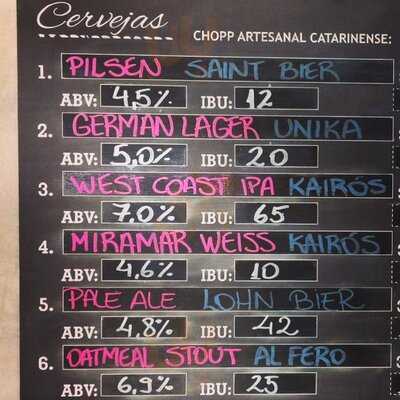 Cervejas
CHOPP ARTESANAL CATARINENSE:
1. PILSEN SAINT BIER
ABV: 4,5% IBU: 12
2. GERMAN LAGER UNIKA
ABV: 5,0% IBU: 20
3. WEST COAST IPA KAIRÓS
ABV: 7.0% IBU: 65
4. MIRAMAR WEISS KAIRÓS
ABV: 4,6% IBU: 10
5. PALE ALE LOHN BIER
ABV: 4,8% IBU: 42
6. OATMEAL STOUT AL FERO
ABV: 6,9% IBU: 25